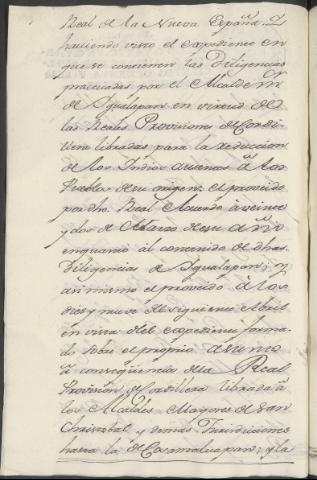 Real de la Nueva España. Y
haviendo visto el expediente en
que se contienen las Diligencias
practicadas por el Alcalde mr
de Igualapan en virtud de
las Reales Provisiones de Cordi-
llera libradas para la reduccion
de los Indios ausentes á los
Pueblos de su origen; el proveido
por dho. Real Acuerdo à veinte
y dos de Marzo de este año
en quanto al contenido de dhas.
Diligencias de Igualapan; y
asimismo el proveido à los
diez y nueve de siguiente Abril
en vista del expediente forma-
do sobre el proprio asunto
à consequencia de la Real
Provision de Cordillera librada à
los Alcaldes Mayores de San
Christobal, y demas Jurisdicciones
hasta la de Cosamaluapan; y la